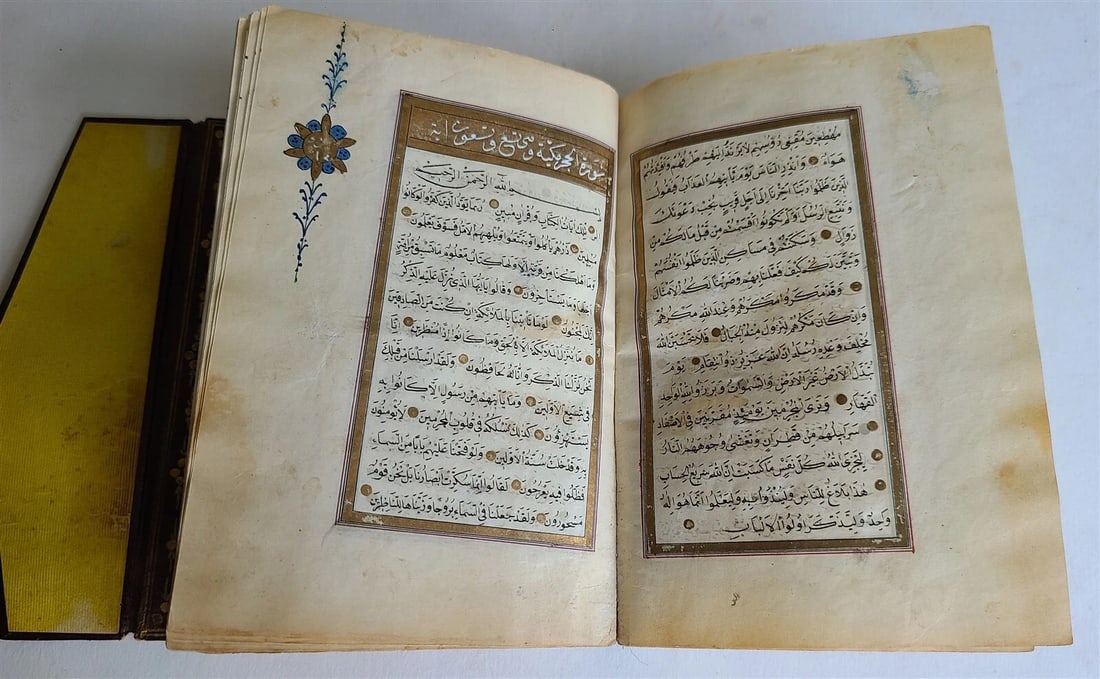 مهطعين مقنعي رؤسهم لا يرتد اليهم طرفهم وافئدتهم
هواء وانذر الناس يوم يأتيهم العذاب فيقول
الذين ظلموا ربنا اخرنا الى اجل قريب نجب دعوتك
ونتبع الرسل اولم تكونوا اقسمتم من قبل ما لكم من
زوال وسكنتم في مساكن الذين ظلموا انفسهم
وتبين لكم كيف فعلنا بهم وضربنا لكم الامثال
وقد مكروا مكرهم وعند الله مكرهم
وان كان مكرهم لتزول منه الجبال فلا تحسبن الله
مخلف وعده رسله ان الله عزيز ذو انتقام يوم
تبدل الارض غير الارض والسموات وبرزوا لله الواحد
القهار وترى المجرمين يومئذ مقرنين في الاصفاد
سرابيلهم من قطران وتغشى وجوههم النار
ليجزي الله كل نفس ما كسبت ان الله سريع الحساب
هذا بلاغ للناس ولينذروا به وليعلموا انما هو اله
واحد وليذكر اولوا الالباب
سورة الحجر مكية وهي تسع وتسعون اية
بسم الله الرحمن الرحيم
الر تلك ايات الكتاب وقران مبين ربما يود الذين كفروا لو كانوا
مسلمين ذرهم ياكلوا ويتمتعوا ويلههم الامل فسوف يعلمون
وما اهلكنا من قرية الا ولها كتاب معلوم ما تسبق من امة
اجلها وما يستأخرون وقالوا يا ايها الذي نزل عليه الذكر
انك لمجنون لو ما تأتينا بالملائكة ان كنت من الصادقين
ما ننزل الملائكة الا بالحق وما كانوا اذا منظرين انا
نحن نزلنا الذكر وانا له لحافظون ولقد ارسلنا من قبلك
في شيع الاولين وما يأتيهم من رسول الا كانوا به
يستهزؤن كذلك نسلكه في قلوب المجرمين لا يؤمنون
به وقد خلت سنة الاولين ولو فتحنا عليهم بابا من السماء
فظلوا فيه يعرجون لقالوا انما سكرت ابصارنا بل نحن قوم
مسحورون ولقد جعلنا في السماء بروجا وزيناها للناظرين